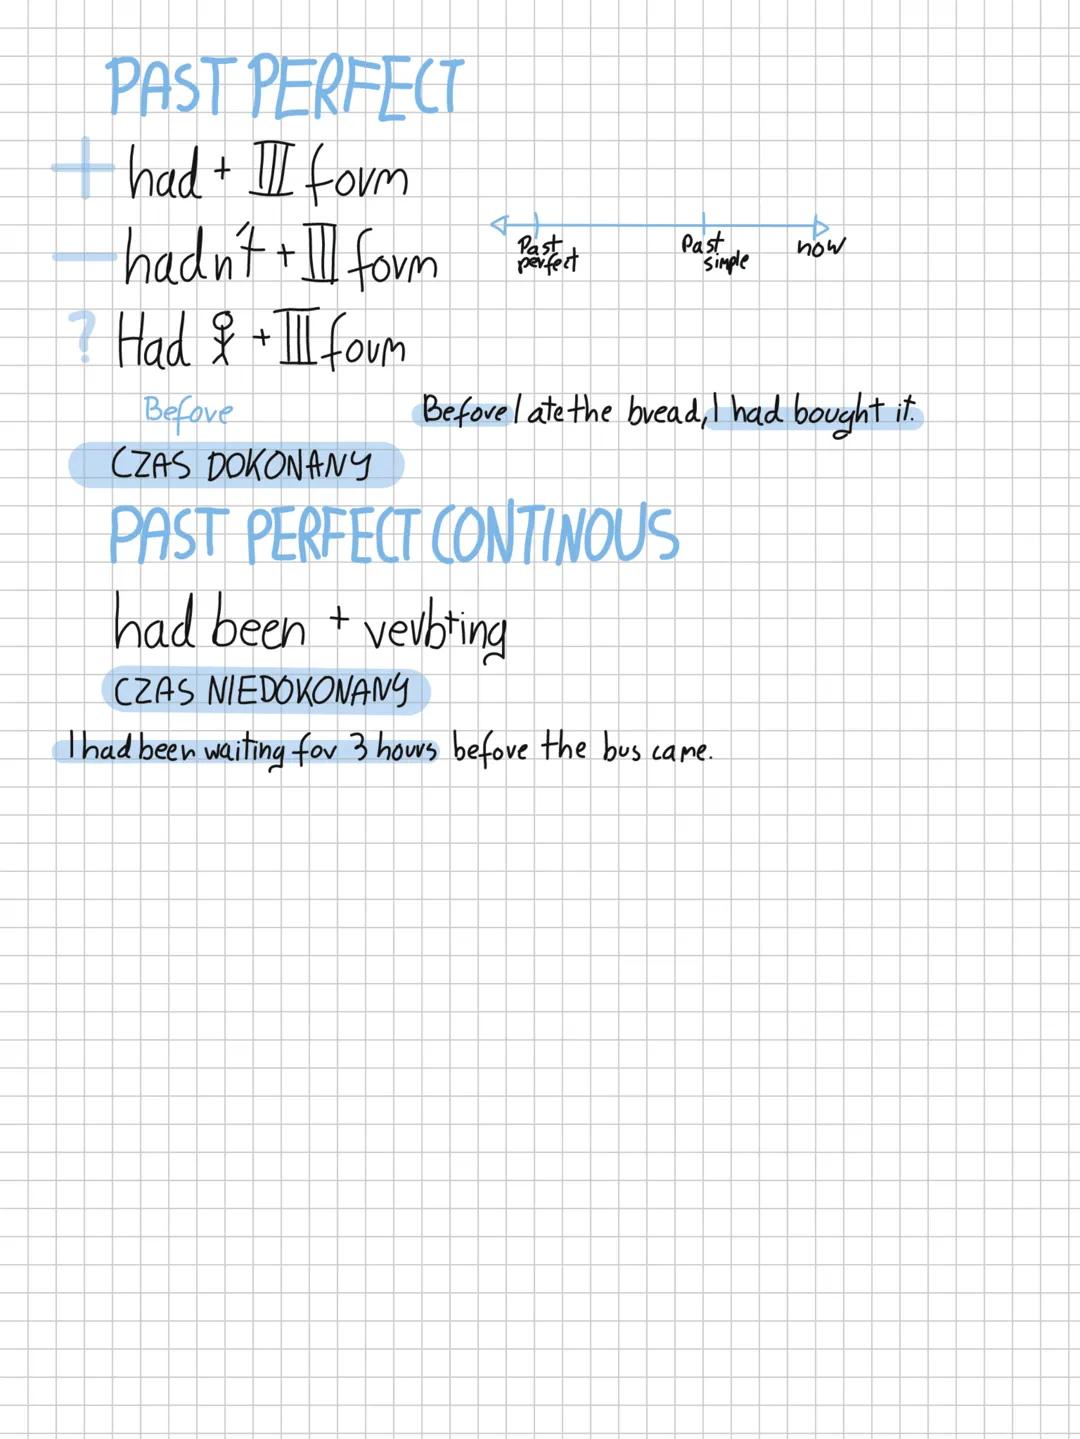 PAST PERFECT
+ had + III form
- hadn't + III form
Past perfect
Past simple
now
? Had + III form
Before
Before I ate the bread, I had bought it.
CZAS DOKONANY
PAST PERFECT CONTINOUS
had been + verb+ing
CZAS NIEDOKONANY
I had been waiting for 3 hours before the bus came.